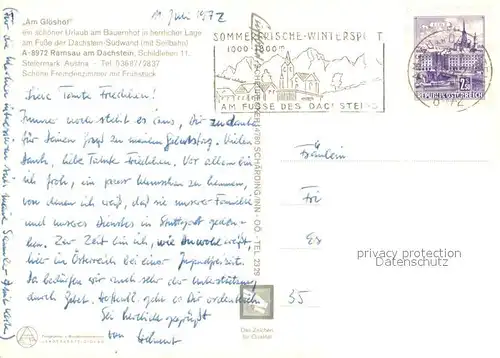 „Am Glöshof"
ein schöner Urlaub am Bauernhof in herrlicher Lage
am Fuße der Dachstein-Südwand (mit Seilbahn)
A-8972 Ramsau am Dachstein, Schildlehen 11.
Steiermark Austria - Tel. 03687/2837
Schöne Fremdenzimmer mit Frühstück
11. Juli 1972
Liebe Tante Friedchen!
Immer noch steht es aus, Dir zu danken
für Deinen Brief zu meinem Geburtstag. Vielen
Dank, liebe Tante Friedchen. Vor allem bin
ich froh, ein paar Menschen zu kennen,
von denen ich weiß, daß sie unserer Familie
und unseres Dienstes in Stuttgart geden-
ken. Zur Zeit bin ich, wie Du wohl weißt,
hier in Österreich bei einer Jugendfreizeit.
Da bedürfen wir auch sehr der Unterstützung
durch Gebet. Hoffentl. geht es Dir ordentlich.
Sei herzlich gegrüßt
von Helmut
SOMMERFRISCHE-WINTERSPORT
1000-1800m
AM FUSSE DES DACHSTEINS
REPUBLIK ÖSTERREICH
4780 SCHÄRDING/INN - OÖ. - TEL. 23 29
Das Zeichen
für Qualität
Fräulein
35
privacy protection
Datenschutz